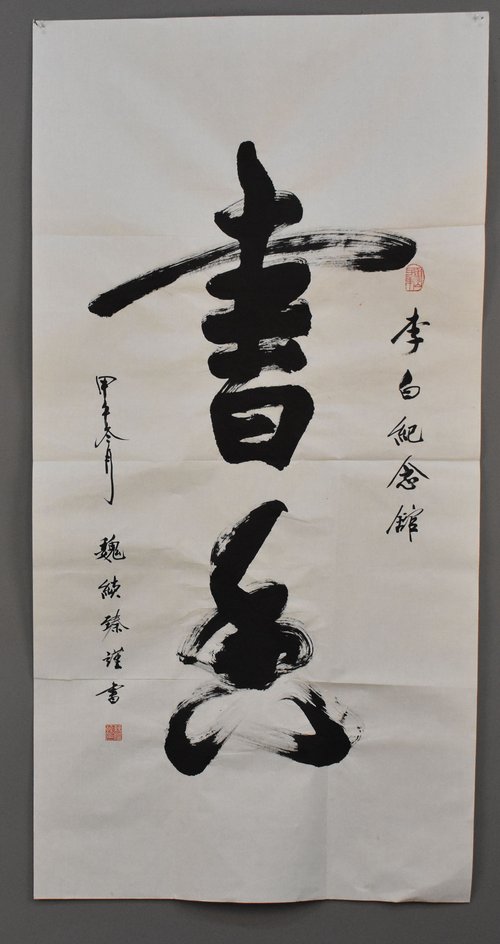 書香
李白紀念館
甲午冬月
魏 臻謹書